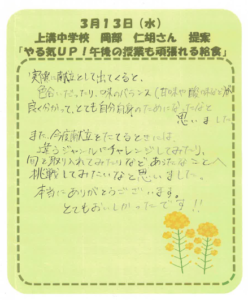 3月13日（水）
上溝中学校 岡部 仁胡さん 提案
「やる気UP！午後の授業も頑張れる給食」
実際に献立として出てくると、
色合いだったり、味のバランス（甘味や酸味など）が
良く分かって、とても自分自身のためになったなと
思いました
また今度献立をたてるときには、
違うジャンルにチャレンジしてみたり、
旬を取り入れてみたりなどあらたなことへ
挑戦してみたいなと思いました。
本当にありがとうございます。
とてもおいしかったです!!